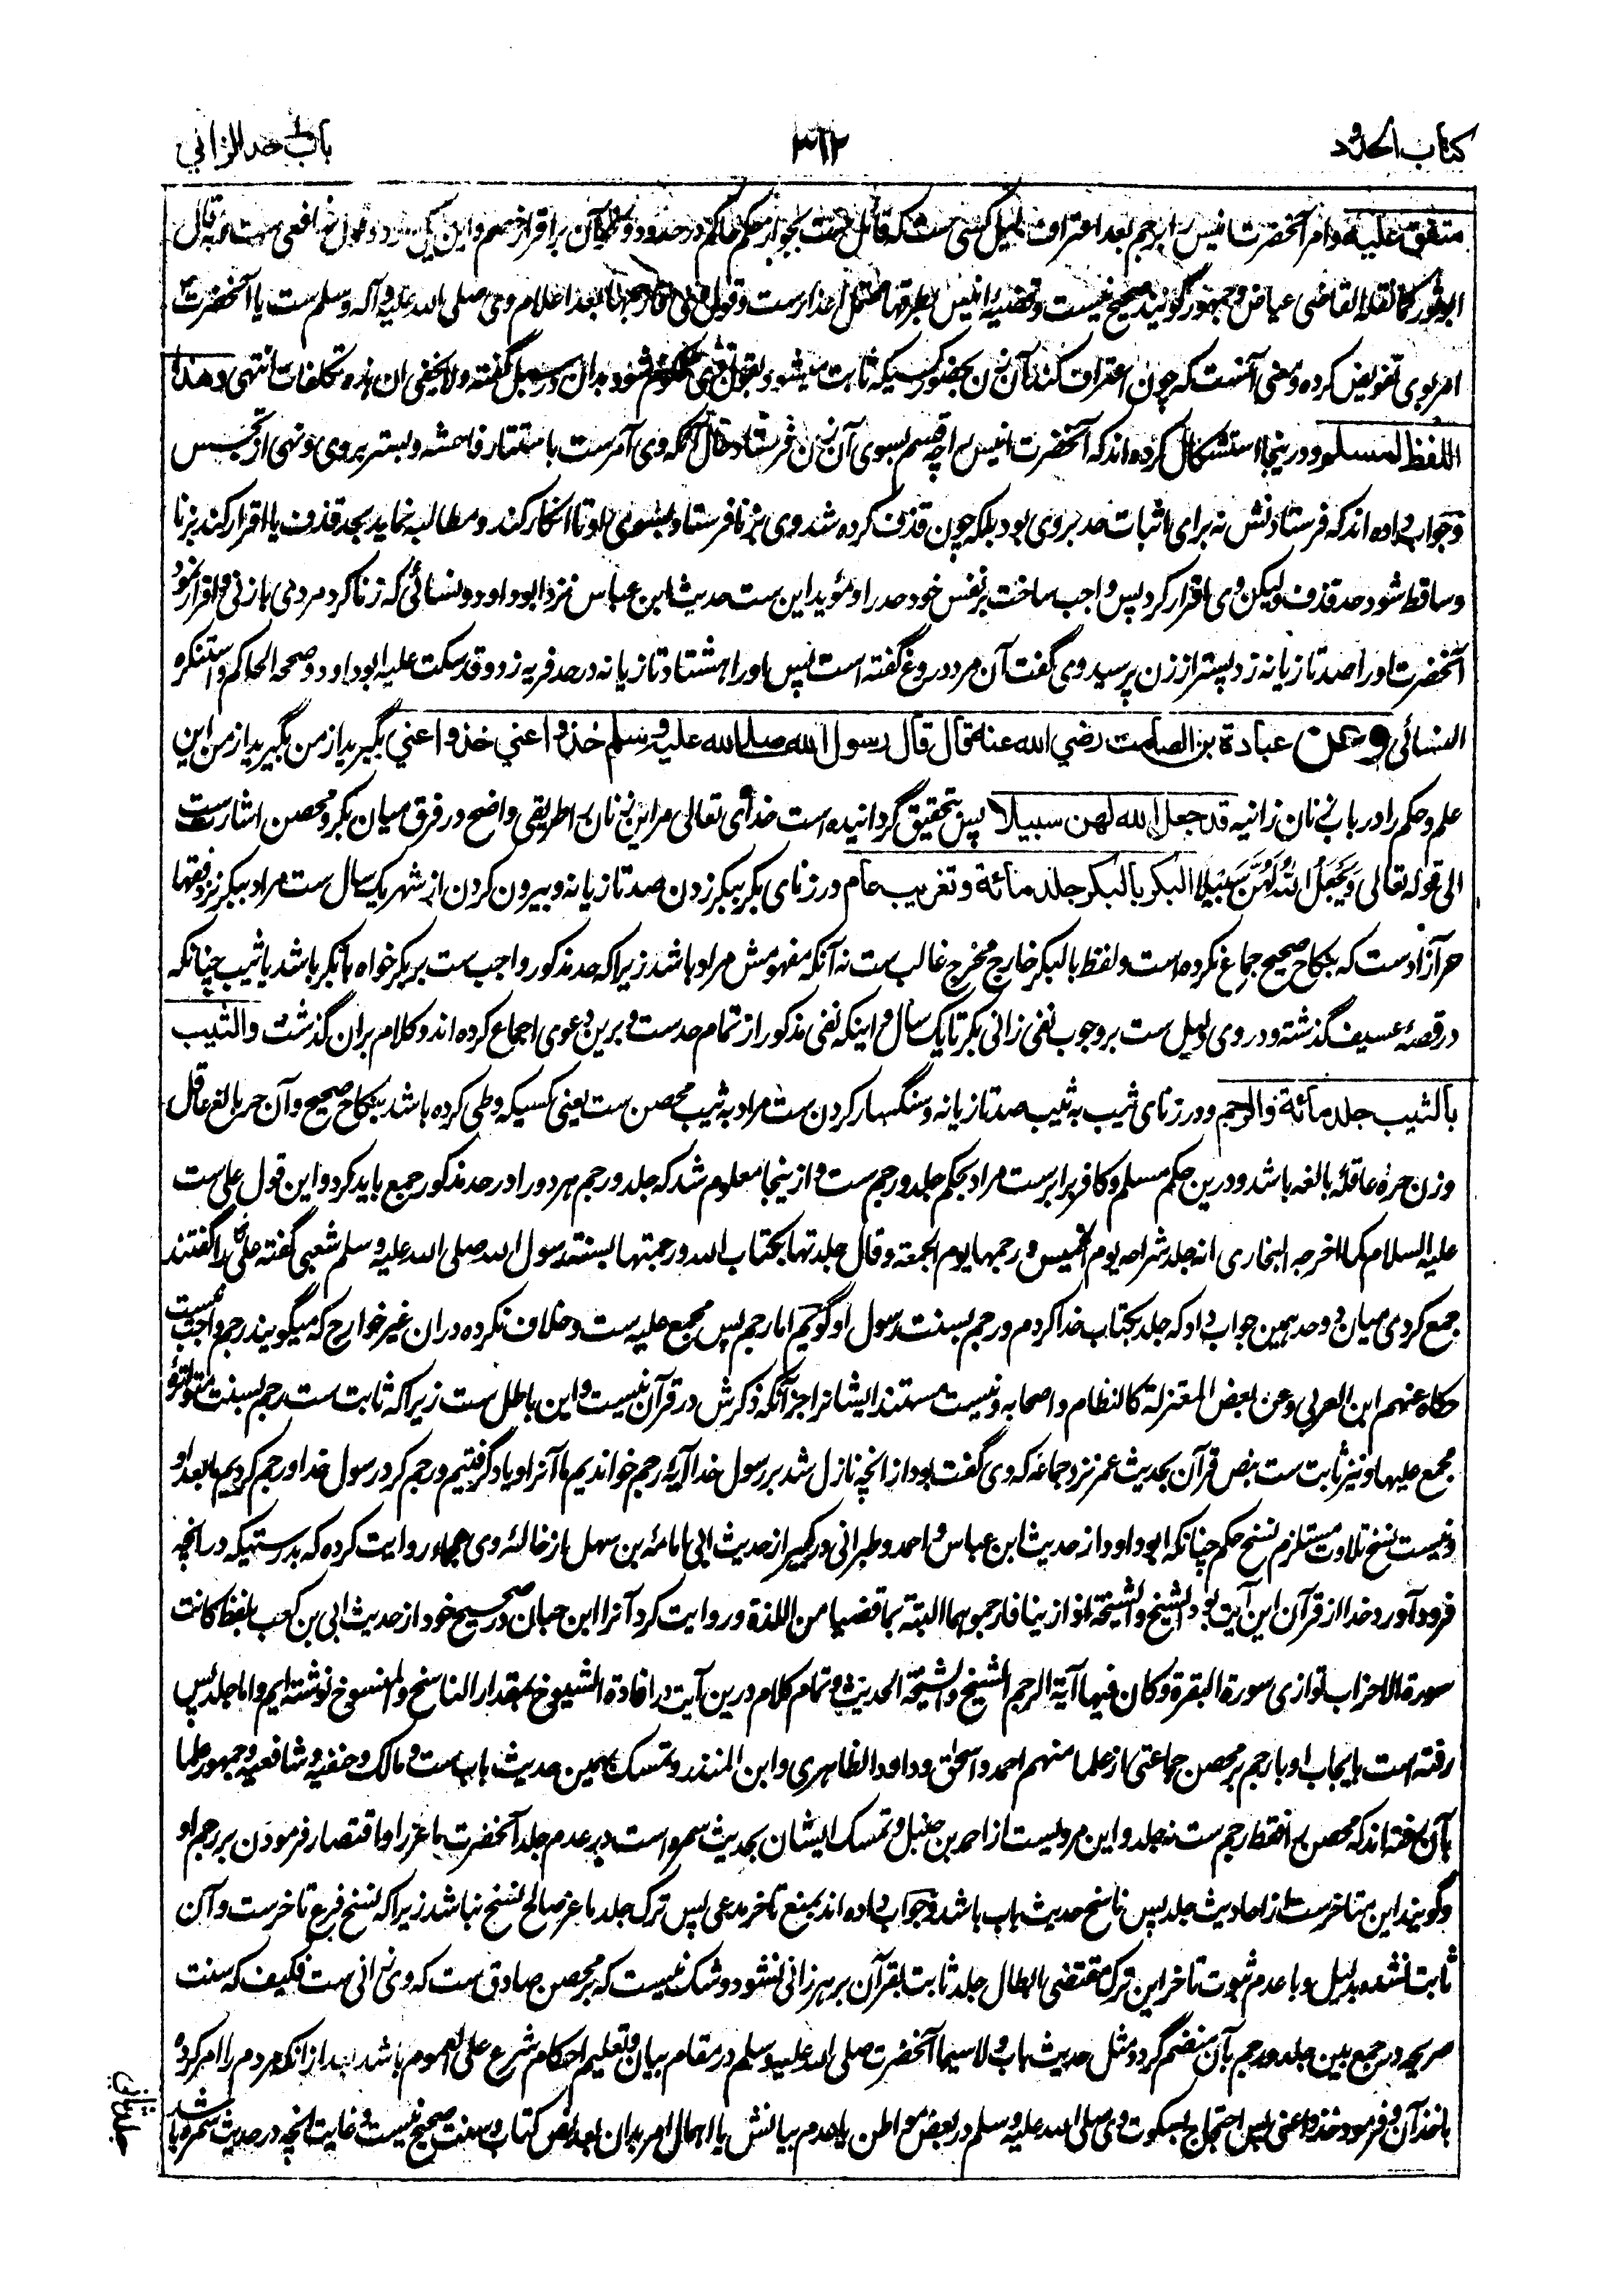 كتاب الحدود
٣١٢
باب حد الزاني
متفق عليه وامر آنحضرت انيس را برجم بعد اعتراف دليل كسى ست كه قائل ست بجواز حكم حاكم در حدود باقرار خصم واين يكى از دو قول شافعى ست وبه قال
ابو ثور كما نقله القاضى عياض وجمهور گويند صحيح نيست وقضيه انيس بطرقها محتمل اعذار ست وقول وى فارجمها بعد اعلام وى صلى الله عليه وآله وسلم ست يا آنحضرت
امر بوى تفويض كرده ومعنى آنست كه چون اعتراف كند آن زن بحضور كسيكه ثابت ميشود بقول وى محكوم شود بدان در سبل گفته ولا يخفى ان هذه تكلفات انتهى وهذا
اللفظ لمسلم ودرينجا استشكال كرده اند كه آنحضرت انيس را چه قسم بسوى آن زن فرستاد حال آنكه وى آمر ست باستتار فاحشه وبستر بر وى ونهى از تجسس
وجواب داده اند كه فرستادنش نه براى اثبات حد بر وى بود بلكه چون قذف كرده شد وى بزنا فرستاد بسوى او تا انكار كند ومطالبه نمايد بحد قذف يا اقرار كند بزنا
وساقط شود حد قذف وليكن وى اقرار كرد پس واجب ساخت بر نفس خود حد را ومؤيد اين ست حديث ابن عباس نزد ابو داود ونسائى كه زنا كرد مردى با زنى واقرار نمود
آنحضرت او را صد تازيانه زد پستر از زن پرسيد وى گفت آن مرد دروغ گفته است پس او را هشتاد تازيانه در حد فريه زد وقد سكت عليه ابو داود وصححه الحاكم واستنكره
النسائى وعن عبادة بن الصامت رضي الله عنه قال قال رسول الله صلى الله عليه وسلم خذوا عني خذوا عني بگيريد از من بگيريد از من اين
علم وحكم را در باب زنان زانيه قد جعل الله لهن سبيلا پس بتحقيق گردانيده است خداى تعالى مر اين زنان را طريقى واضح در فرق ميان بكر ومحصن اشارت ست
الى قوله تعالى وَيَجْعَلَ اللهُ لَهُنَّ سَبِيلًا البكر بالبكر جلد مائة وتغريب عام ودر زناى بكر ببكر زدن صد تازيانه وبيرون كردن از شهر يك سال ست مراد ببكر نزد فقها
حر آزاد ست كه بنكاح صحيح جماع نكرده است ولفظ بالبكر خارج مخرج غالب ست نه آنكه مفهومش مراد باشد زيرا كه حد مذكور واجب ست بر بكر خواه با بكر باشد يا ثيب چنانكه
در قصۀ عسيف گذشته ودر وى دليل ست بر وجوب نفى زانى بكر تا يك سال واينكه نفى مذكور از تمام حد ست وبرين دعوى اجماع كرده اند وكلام بران گذشت والثيب
بالثيب جلد مائة والرجم ودر زناى ثيب به ثيب صد تازيانه وسنگسار كردن ست مراد به ثيب محصن ست يعنى كسيكه وطى كرده باشد بنكاح صحيح وآن حر بالغ عاقل
وزن حرۀ عاقله بالغه باشد ودرين حكم مسلم وكافر برابر ست مراد بحكم جلد ورجم ست وازينجا معلوم شد كه جلد ورجم هر دو را در حد مذكور جمع بايد كرد واين قول على ست
عليه السلام كما اخرجه البخارى انه جلد شراحه يوم الخميس ورجمها يوم الجمعة وقال جلدتها بكتاب الله ورجمتها بسنة رسول الله صلى الله عليه وسلم شعبى گفته على را گفتند
جمع كردى ميان دو حد همين جواب داد كه جلد بكتاب خدا كردم ورجم بسنت رسول او گويم اما رجم پس مجمع عليه ست وخلاف نكرده دران غير خوارج كه ميگويند رجم واجب نيست
حكاه عنهم ابن العربى وعن بعض المعتزلة كالنظام واصحابه ونيست مستند ايشانرا جز آنكه ذكرش در قرآن نيست واين باطل ست زيرا كه ثابت ست رجم بسنت متواترۀ
مجمع عليها ونيز ثابت ست بنص قرآن بحديث عمر نزد جماعه كه وى گفت بود از انچه نازل شد بر رسول خدا آيۀ رجم خوانديم ما آنرا وياد گرفتيم ورجم كرد رسول خدا ورجم كرديم ما بعد او
ونيست نسخ تلاوت مستلزم نسخ حكم چنانكه ابو داود از حديث ابن عباس واحمد وطبرانى در كبير از حديث ابى امامۀ بن سهل از خالۀ وى عجماء روايت كرده كه بدرستيكه در انچه
فرود آورد خدا از قرآن اين آيت بود الشيخ والشيخة اذا زنيا فارجموهما البتة بما قضيا من اللذة وروايت كرد آنرا ابن حبان در صحيح خود از حديث ابى بن كعب بلفظ كانت
سورة الاحزاب توازى سورة البقرة وكان فيها آية الرجم الشيخ والشيخة الحديث وتمام كلام درين آيت در افادة الشيوخ بمقدار الناسخ والمنسوخ نوشته ايم واما جلد پس
رفته است بايجاب او با رجم بر محصن جماعتى از علما منهم احمد واسحاق وداود الظاهرى وابن المنذر وتمسك بهمين حديث باب ست ومالك وحنفيه وشافعيه وجمهور علما
بآن رفته اند كه محصن را فقط رجم ست نه جلد واين مرويست از احمد بن حنبل وتمسك ايشان بحديث سمره است در عدم جلد آنحضرت ماعز را واقتصار فرمودن بر رجم او
وگويند اين متاخر ست از احاديث جلد پس ناسخ حديث باب باشد وجواب داده اند بمنع تاخر مدعى پس ترك جلد ماعز صالح نسخ نباشد زيرا كه نسخ فرع تاخر ست وآن
ثابت نشده بدليل وبا عدم ثبوت تاخر اين ترك مقتضى ابطال جلد ثابت بقرآن بر هر زانى نشود وشك نيست كه بر محصن صادق ست كه وى زانى ست فكيف كه سنت
صريحه در جمع بين جلد ورجم بآن منضم گردد مثل حديث باب ولا سيما آنحضرت صلى الله عليه وسلم در مقام بيان وتعليم احكام شرع على العموم باشد بعد ازانكه مردم را امر كرده
باخذ آن وفرموده خذوا عنى پس احتجاج بسكوت وى صلى الله عليه وسلم در بعض مواطن يا عدم بيانش يا اهمال امر بدان بعد نص كتاب وسنت صحيح نيست وغايت انچه در حديث سمره باشد